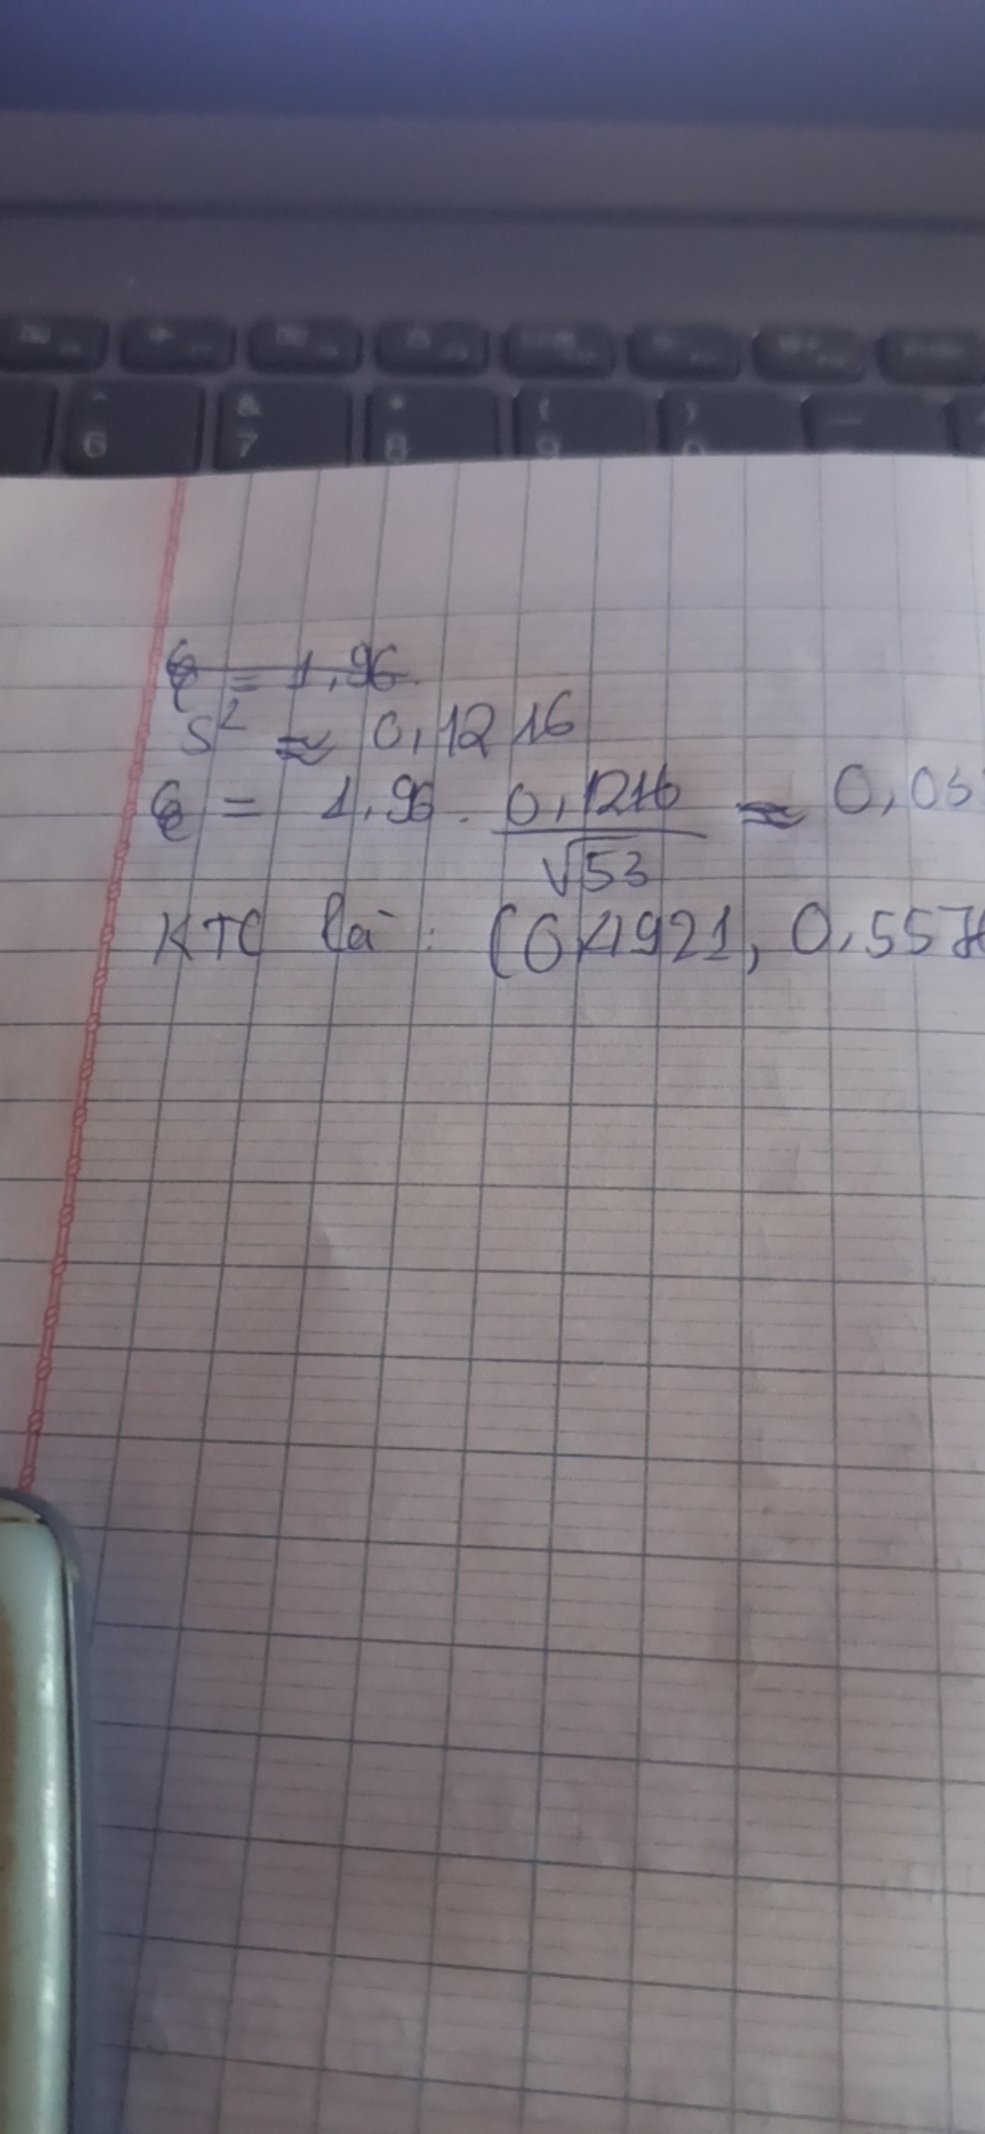 6
&
7
*
8
(
9
)
ε = 1,96
S² ≈ 0,1216
ε = 1,96 . 0,1216 / √53 ≈ 0,03
KTC là : (0,4921, 0,557